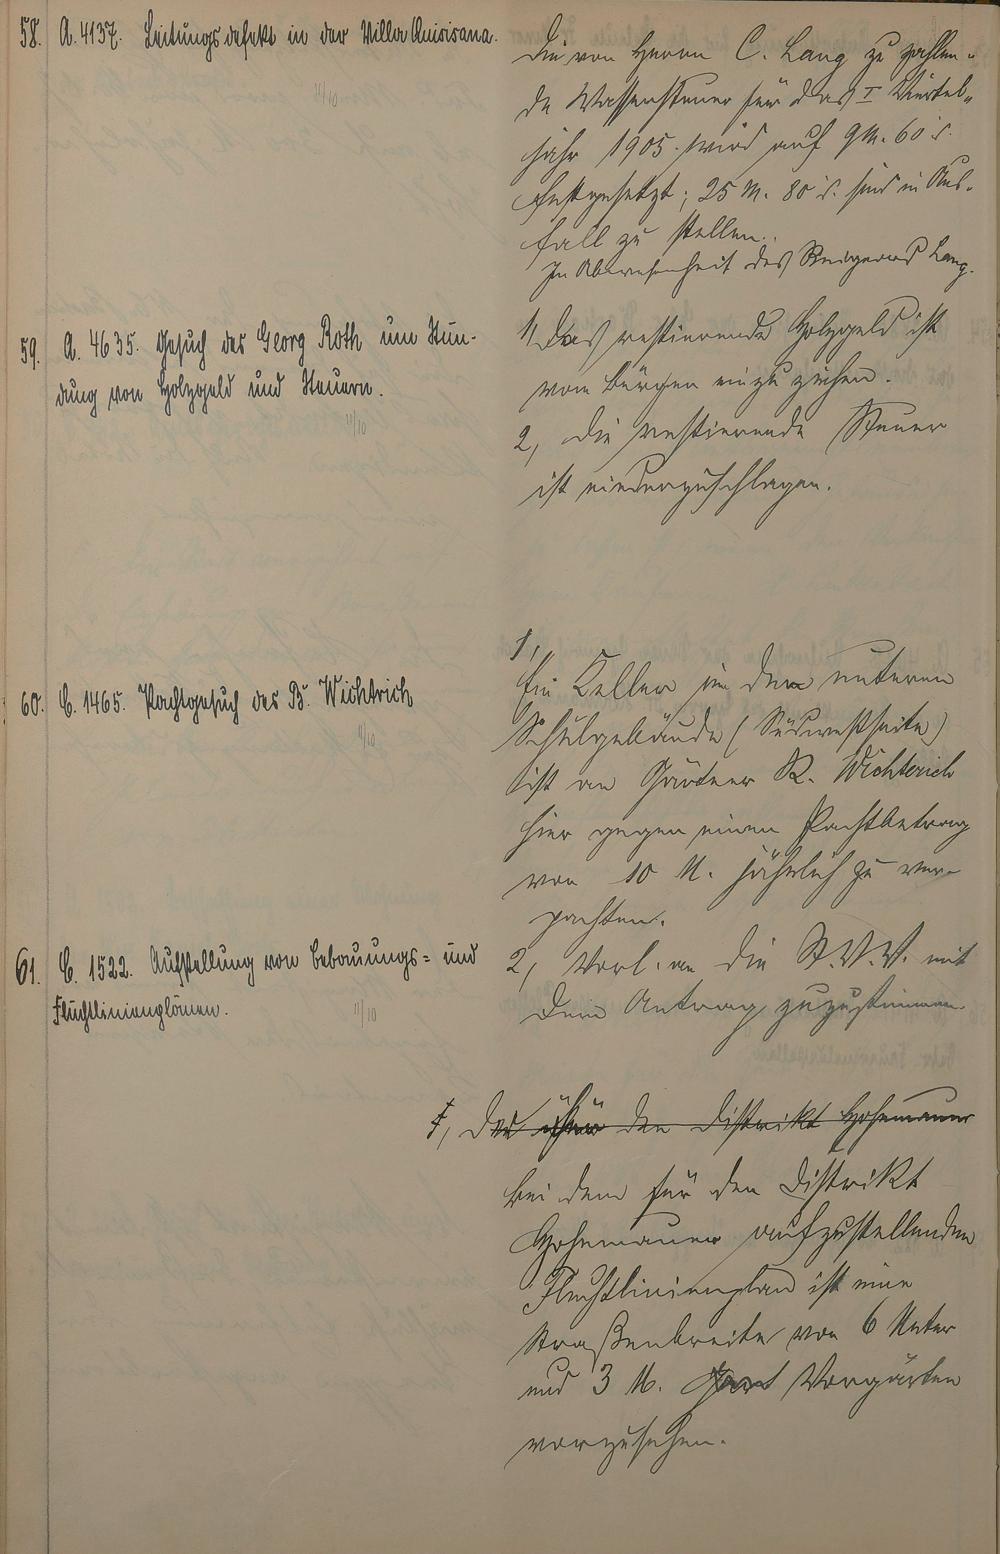 58. A. 4137. Leitungsdefekt in der Villa Quisisana.
11/10
Die von Herrn C. Lang zu zahlen-
de Wassersteuer für das I Viertel-
jahr 1905 wird auf 9 M. 60 d.
festgesetzt; 25 M. 80 d. sind in Aus-
fall zu stellen.
In Abwesenheit des Beigeord Lang.
59. A. 4635. Gesuch des Georg Roth um Stun-
dung von Holzgeld und Steuern.
11/10
1, Das restierende Holzgeld ist
vom Bürgen einzuziehen.
2, die restierende Steuer
ist niederzuschlagen.
60. C. 1465. Pachtgesuch des B. Wichtrich
11/10
1,
Ein Keller in dem unteren
Schulgebäude (Südwestseite)
ist an Gärtner R. Wichterich
hier gegen einen Pachtbetrag
von 10 M. jährlich zu ver-
pachten.
2, Vorl. an die St.V.V. mit
dem Antrag zuzustimmen.
61. C. 1522. Aufstellung von Bebauungs= und
Fluchtlinienplänen.
11/10
1, Der für den Distrikt Hohemauer
bei dem für den Distrikt
Hohemauer aufzustellenden
Fluchtlinienplan ist eine
Straßenbreite von 6 Meter
und 3 M. Vorgärten
vorzusehen.